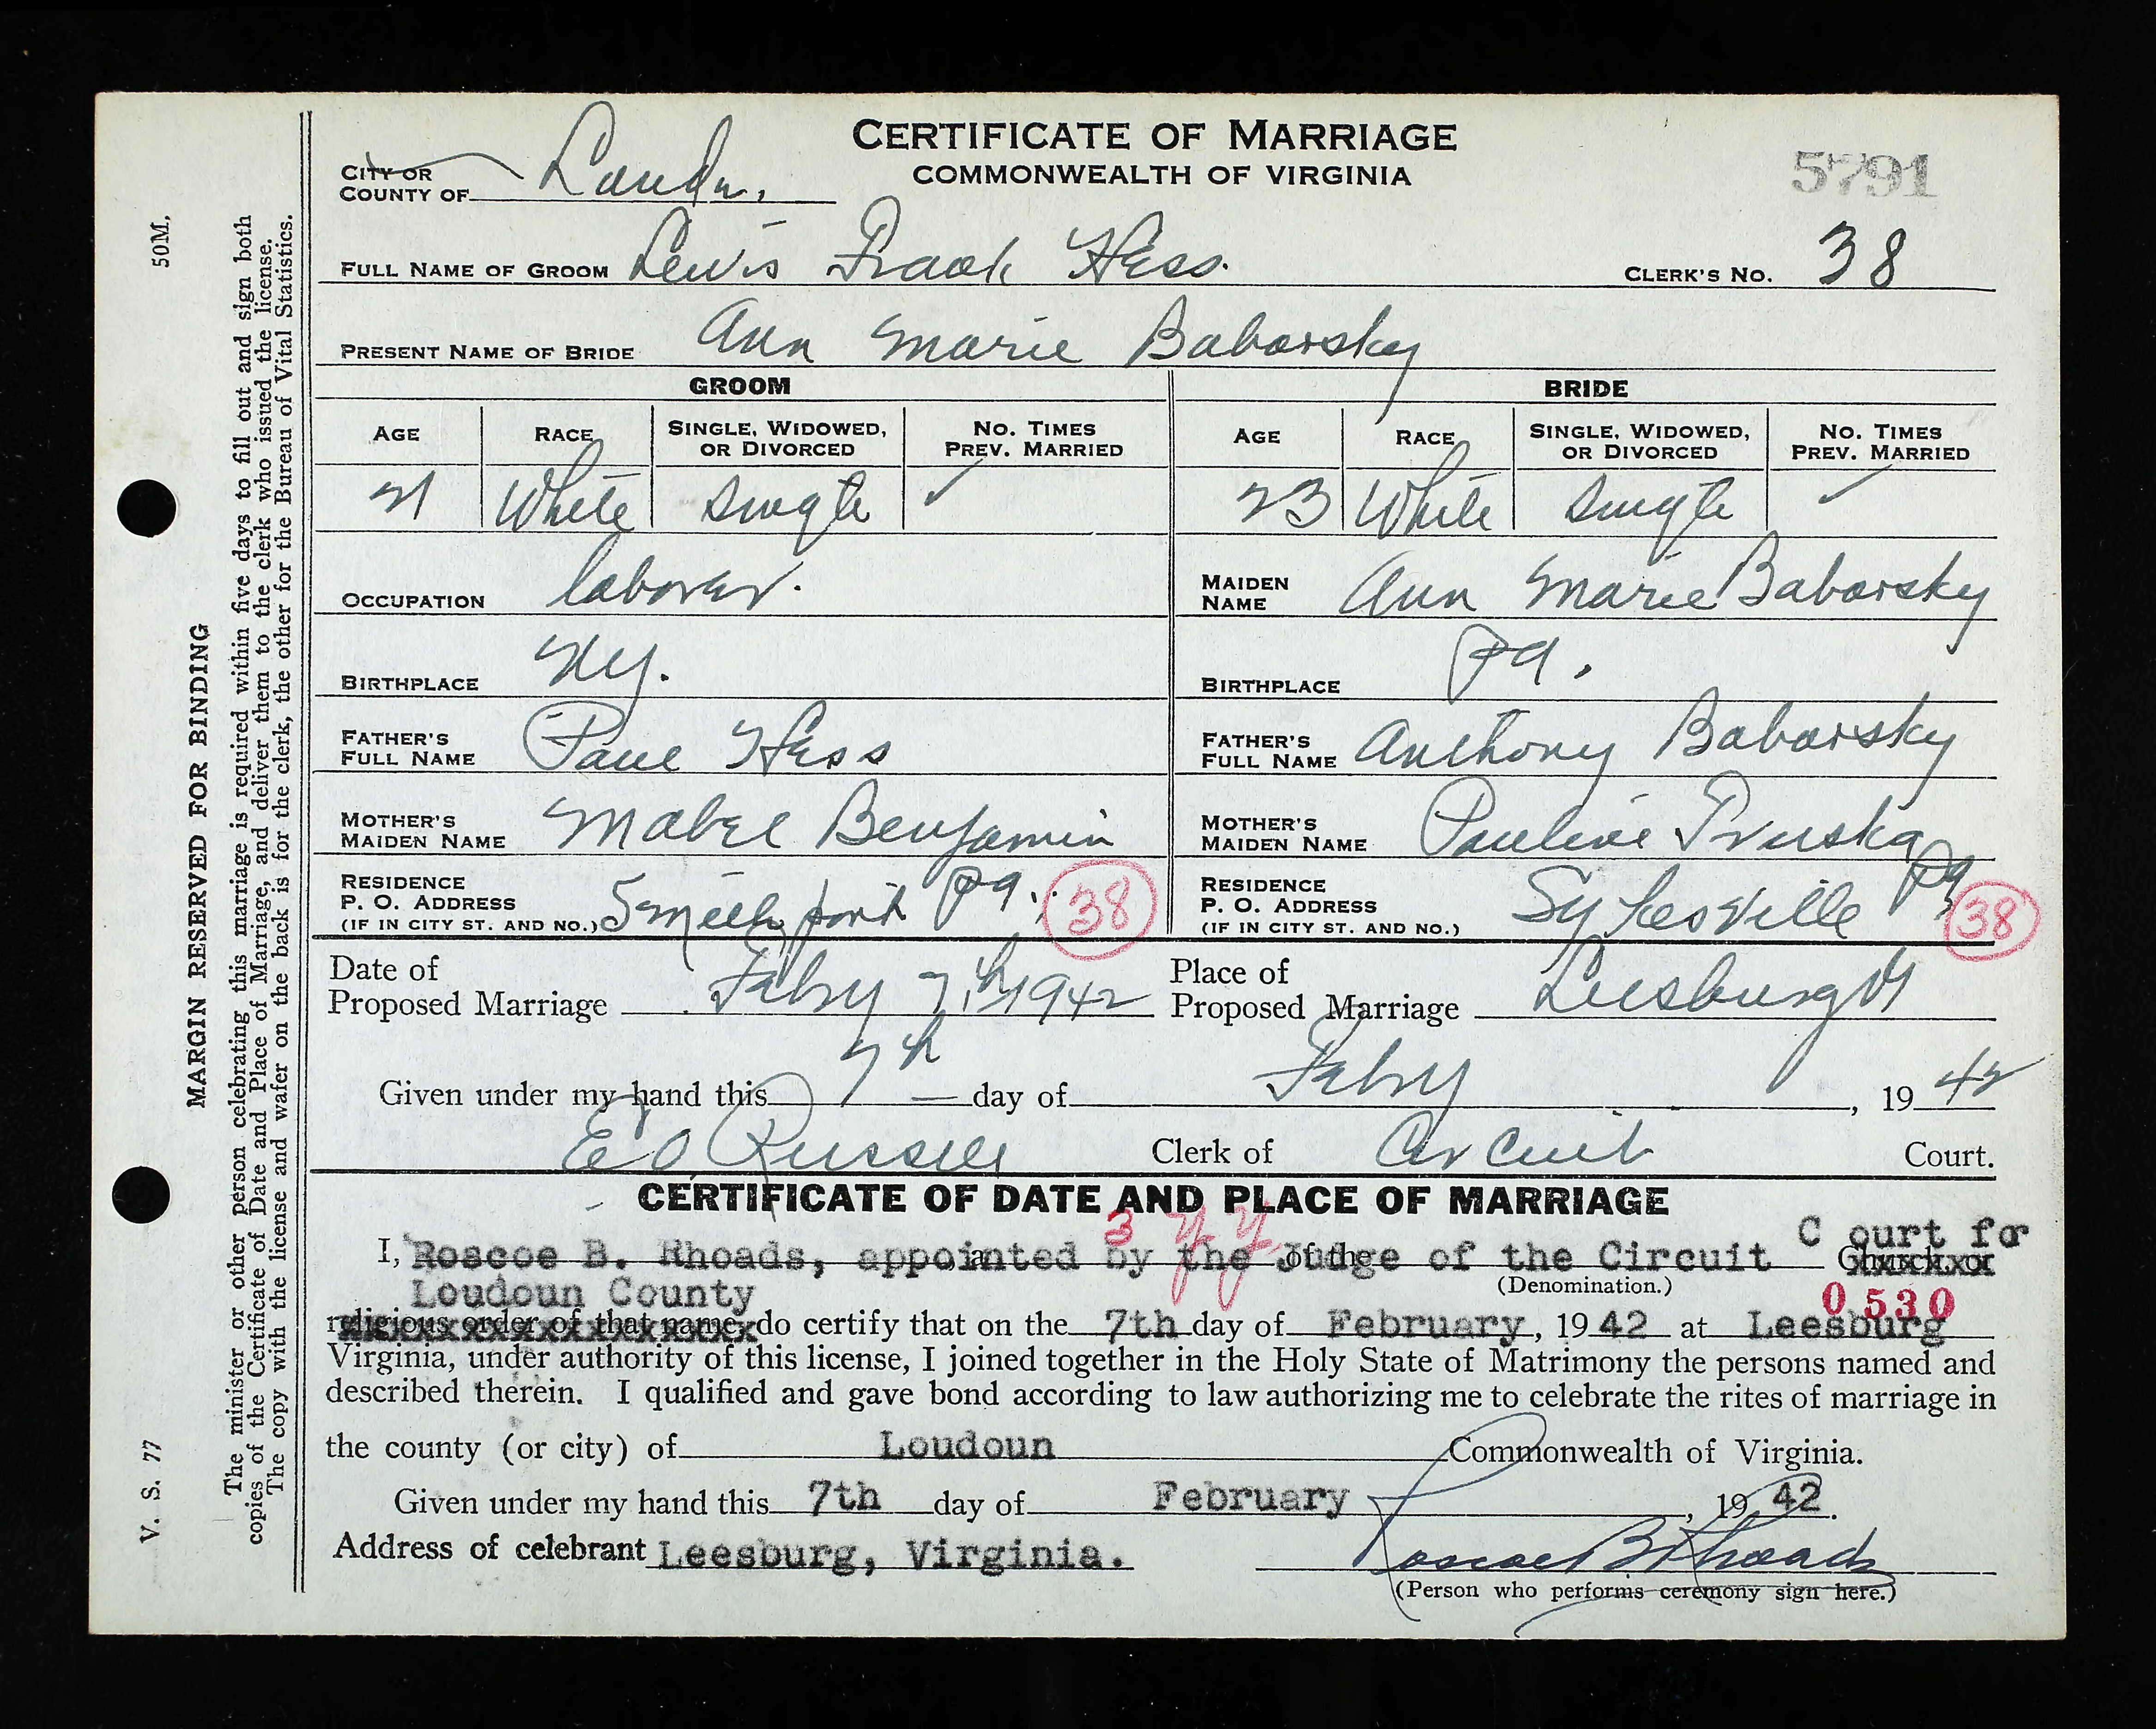 CERTIFICATE OF MARRIAGE
COMMONWEALTH OF VIRGINIA
5791
CITY OR
COUNTY OF Loudn,
FULL NAME OF GROOM Lewis Frank Hess. CLERK'S No. 38
PRESENT NAME OF BRIDE Ann Marie Baborsky
GROOM BRIDE
AGE RACE SINGLE, WIDOWED, OR DIVORCED NO. TIMES PREV. MARRIED AGE RACE SINGLE, WIDOWED, OR DIVORCED NO. TIMES PREV. MARRIED
21 White Single ✓ 23 White Single ✓
OCCUPATION laborer. MAIDEN NAME Ann Marie Baborsky
BIRTHPLACE Ny. BIRTHPLACE Pa.
FATHER'S FULL NAME Paul Hess FATHER'S FULL NAME Anthony Baborsky
MOTHER'S MAIDEN NAME Mabel Benjamin MOTHER'S MAIDEN NAME Pauline Pruska
RESIDENCE P. O. ADDRESS (IF IN CITY ST. AND NO.) Smethport Pa. 38 RESIDENCE P. O. ADDRESS (IF IN CITY ST. AND NO.) Sykesville Pa 38
Date of Proposed Marriage Febry 7th 1942 Place of Proposed Marriage Leesburg Va
Given under my hand this 7th day of Febry, 1942
E O Russell Clerk of Circuit Court.
CERTIFICATE OF DATE AND PLACE OF MARRIAGE
3
I, Roscoe B. Rhoads, appointed by the Judge of the Circuit C ourt for
(Denomination.)
Loudoun County
0530
religious order of that name, do certify that on the 7th day of February, 1942 at Leesburg
Virginia, under authority of this license, I joined together in the Holy State of Matrimony the persons named and
described therein. I qualified and gave bond according to law authorizing me to celebrate the rites of marriage in
the county (or city) of Loudoun Commonwealth of Virginia.
Given under my hand this 7th day of February, 1942.
Address of celebrant Leesburg, Virginia. Roscoe B Rhoads
(Person who performs ceremony sign here.)
MARGIN RESERVED FOR BINDING
The minister or other person celebrating this marriage is required within five days to fill out and sign both
copies of the Certificate of Date and Place of Marriage, and deliver them to the clerk who issued the license.
The copy with the license and wafer on the back is for the clerk, the other for the Bureau of Vital Statistics.
V. S. 77 50M.